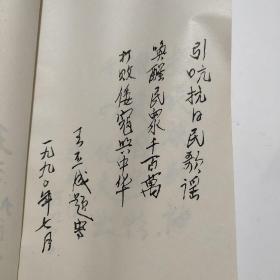 引吭抗日民歌谣
唤醒民众千百萬
打败倭寇兴中华
王玉成题书
一九九〇年七月